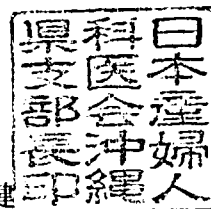 日本産婦人
科医会沖縄
県支部長印